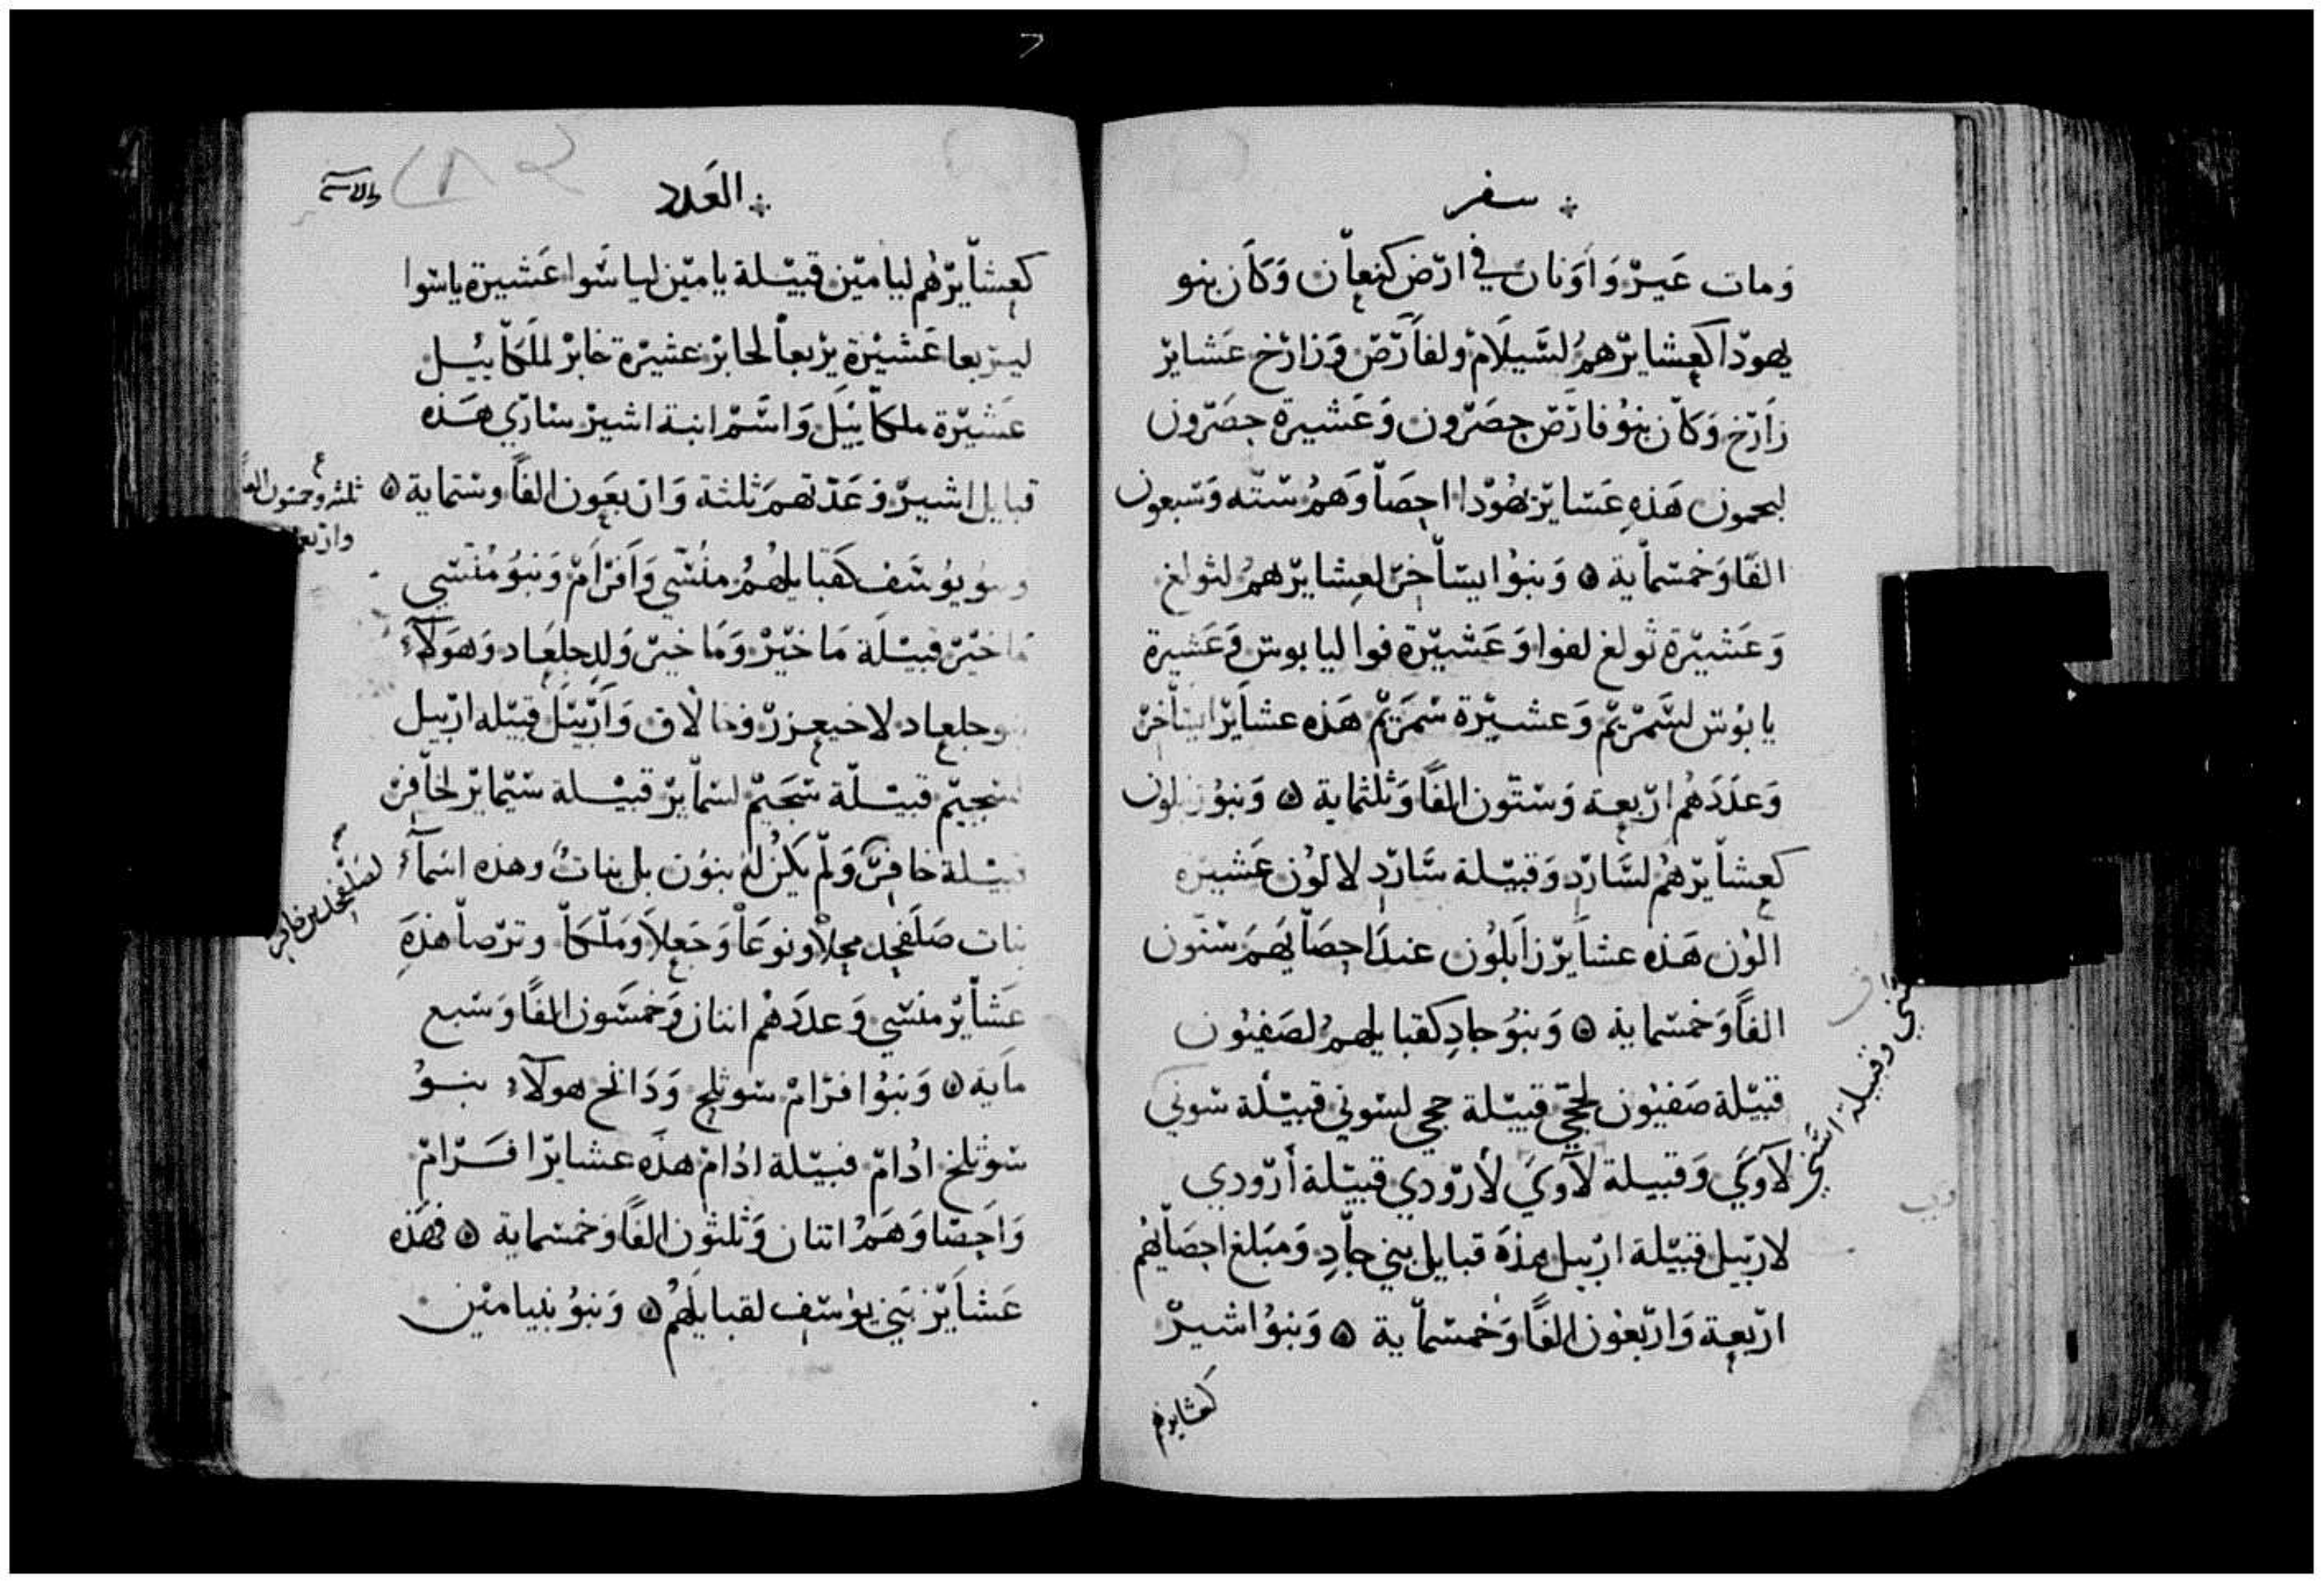 سفر
ومات عير وأونان في ارض كنعان وكان بنو
يهودا كعشايرهم لشيلام ولفارص وزارخ عشاير
زارخ وكان بنو فارص حصرون وعشيرة حصرون
لحمون هذه عشاير يهودا احصا وهم ستة وسبعون
الفا وخمسماية ۞ وبنوا ايساخر لعشايرهم لثولغ
وعشيرة ثولغ لفوا وعشيرة فوا ليا بوس وعشيرة
يا بوس لشمريم وعشيرة شمريم هذه عشاير ايساخر
وعددهم اربعة وستون الفا وثلثماية ۞ وبنو زبلون
كعشايرهم لسارد وقبيلة سارد لالون عشيرة
الون هذه عشاير زابلون عند احصايهم ستون
الفا وخمسماية ۞ وبنو جاد كقبايلهم لصفيون
قبيلة صفيون لحجي قبيلة حجي لسوني قبيلة سوني
لآوكي وقبيلة لآوكي لأرودي قبيلة أرودي
لارييل قبيلة ارييل هذه قبايل بني جاد ومبلغ احصايهم
اربعة واربعون الفا وخمسماية ۞ وبنو اشير
كعشايرهم
وقبيلة اسني
العدد
كعشايرهم ليامين قبيلة يامين لياسوا عشيرة ياسوا
ليربعا عشيرة يربعا لحابر عشيرة خابر لملكاييل
عشيرة ملكاييل واسم ابنة اشير ساري هذه
قبايل اشير وعدتهم ثلثة واربعون الفا وستماية ۞
ثلثه وخمسون الفا
واربع
وبنو يوسف كقبايلهم منسي وافرام وبنو منسي
ماخير قبيلة ماخير وماخير ولد جلعاد وهولآء
بنو جلعاد لاخيعزر وخالاق واربيل قبيله اربيل
لسجيم قبيلة سجيم لسماير قبيلة سيماير لحافر
قبيلة خافر ولم يكن له بنون بل بنات وهذه اسمآء
لصلفحد بن خافر
بنات صلفحد محلا ونوعا وحعلا وملكا وترصا هذه
عشاير منسي وعددهم اثنان وخمسون الفا وسبع
ماية ۞ وبنوا افرام سوتلخ ودانخ هولآء بنو
سوتلخ ادام قبيلة ادام هذه عشاير افرام
واحصا وهم اثنان وثلثون الفا وخمسماية ۞ فهذه
عشاير بني يوسف لقبايلهم ۞ وبنو بنيامين